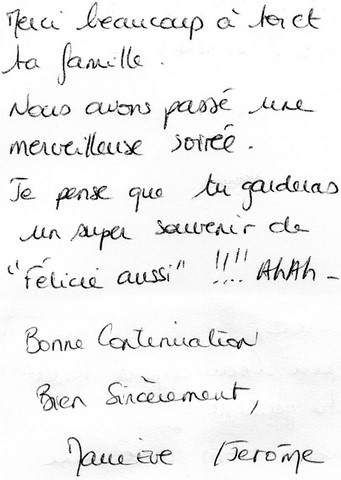 Merci beaucoup à toi et
ta famille.
Nous avons passé une
merveilleuse soirée.
Je pense que tu garderas
un super souvenir de
"Félicie aussi" !!!! AhAh -
Bonne Continuation
Bien Sincèrement,
Jérôme